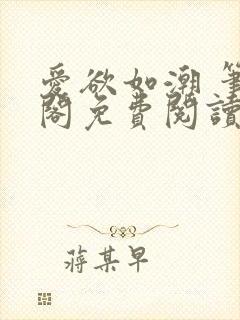 愛欲如潮 筆
閣免費閱讀
蔣某早